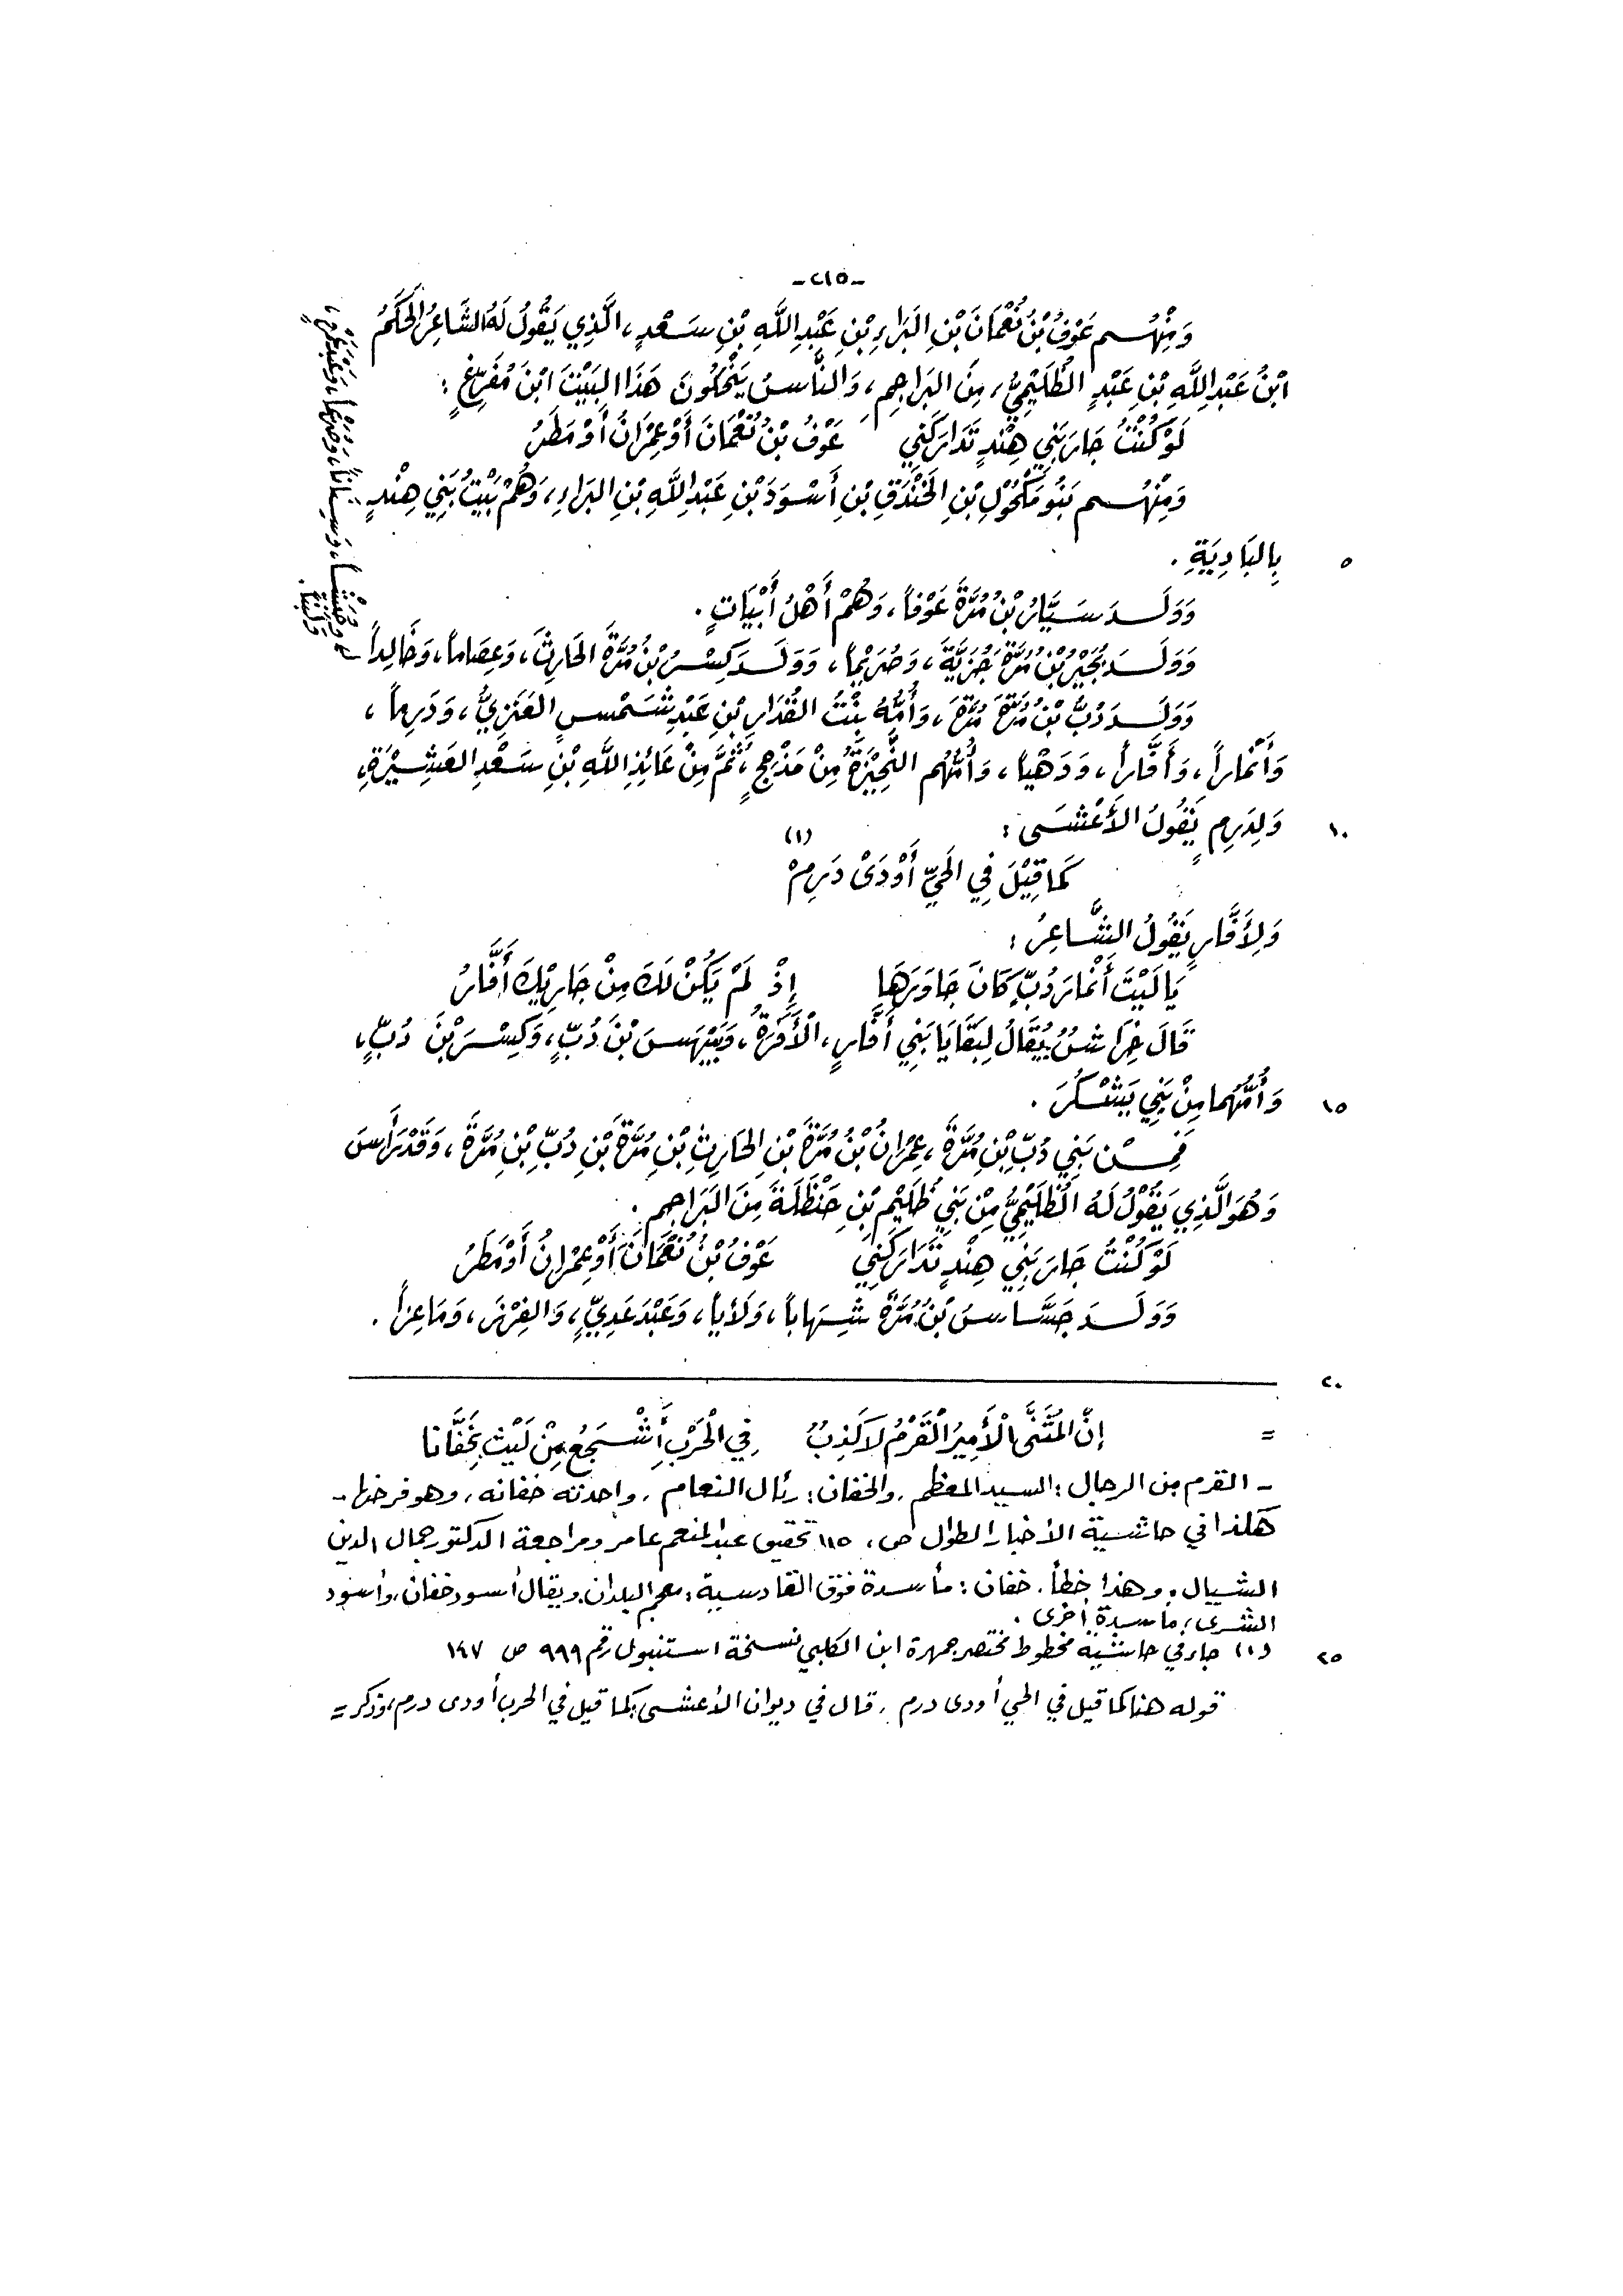 -٢١٥-
وَمِنْهُم عَوْفُ بْنُ نُعْمَانَ بْنِ البَرَاءِ بْنِ عَبْدِ اللَّهِ بْنِ سَعْدٍ، الَّذِي يَقُولُ لَهُ الشَّاعِرُ الحَكَمُ
ابْنُ عَبْدِ اللَّهِ بْنِ عَبْدٍ الظُّلَيْمِيُّ، مِنَ البَرَاجِمِ، وَالنَّاسُ يَنْحَلُونَ هَذَا البَيْتَ ابْنَ مُفَرِّغٍ :
لَوْ كُنْتُ جَارَ بَنِي هِنْدٍ تَدَارَكَنِي عَوْفُ بْنُ نُعْمَانَ أَوْ عِمْرَانُ أَوْ مَطَرُ
وَمِنْهُم بَنُو مَكْحُوْلِ بْنِ الخَنْدَقِ بْنِ أَسْوَدَ بْنِ عَبْدِ اللَّهِ بْنِ البَرَاءِ، وَهُمْ بَيْتُ بَنِي هِنْدٍ
بِالبَادِيَةِ . ٥
وَوَلَدَ سَيَّارُ بْنُ مُرَّةَ عَوْفاً، وَهُمْ أَهْلُ أَبْيَاتٍ .
وَوَلَدَ بُجَيْرُ بْنُ مُرَّةَ جُزَيَّةَ، وَصُرَيْماً، وَوَلَدَ كِسْرُ بْنُ مُرَّةَ الحَارِثَ، وَعِصَاماً، وَخَالِداً
وَوَلَدَ دُبُّ بْنُ مُرَّةَ مُرَّةَ، وَأُمُّهُ بِنْتُ القُدَارِ بْنِ عَبْدِ شَمْسٍ العَنَزِيُّ، وَدَرِماً،
وَأَنْمَاراً، وَأَفَّاراً، وَدَهْياً، وَأُمُّهُم النَّجِيْزَةُ مِنْ مَذْحِجٍ، ثُمَّ مِنْ عَائِذِ اللَّهِ بْنِ سَعْدِ العَشِيْرَةِ،
وَلِدَرِمٍ يَقُولُ الأَعْشَى : ١٠
كَمَا قِيْلَ فِي الحَيِّ أَوْدَىْ دَرِمْ (١)
وَلِأَفَّارٍ يَقُولُ الشَّاعِرُ :
يَا لَيْتَ أَنْمَارَ دُبٍّ كَانَ جَاوَرَهَا إِذْ لَمْ يَكُنْ لَكَ مِنْ جَارَيْكَ أَفَّارُ
قَالَ خِرَاشٌ يُقَالُ لِبَقَايَا بَنِي أَفَّارٍ، الْأَفَرَةُ، وَبَيْهَسَ بْنَ دُبٍّ، وَكِسْرَ بْنَ دُبٍّ،
وَأُمُّهُمَا مِنْ بَنِي يَشْكُرَ . ١٥
فَمِنْ بَنِي دُبِّ بْنِ مُرَّةَ، عِمْرَانُ بْنُ مُرَّةَ بْنِ الحَارِثِ بْنِ مُرَّةَ بْنِ دُبِّ بْنِ مُرَّةَ، وَقَدْ رَأَسَ
وَهُوَ الَّذِي يَقُوْلُ لَهُ الظُّلَيْمِيُّ مِنْ بَنِي ظُلَيْمِ بْنِ حَنْظَلَةَ مِنَ البَرَاجِمِ .
لَوْ كُنْتُ جَارَ بَنِي هِنْدٍ تَدَارَكَنِي عَوْفُ بْنُ نُعْمَانَ أَوْ عِمْرَانُ أَوْ مَطَرُ
وَوَلَدَ جَسَّاسُ بْنُ مُرَّةَ شِهَاباً، وَلَأْياً، وَعَبْدَ عَدِيٍّ، وَالفِزْرَ، وَمَاعِزاً .
٢٠
= إِنَّ الْمُثَنَّى الْأَمِيْرُ الْقَرْمُ لَا كَذِبُ فِي الْحَرْبِ أَشْجَعُ مِنْ لَيْثٍ بِخَفَّانَا
- القرم من الرجال : السيد المعظم، والخفان : رئال النعام، واحدته خفانه، وهو فرخها -
هكذا في حاشية الأخبار الطوال ص، ١١٥ تحقيق عبد المنعم عامر ومراجعة الدكتور جمال الدين
الشيال . وهذا خطأ، خفان : مأسدة فوق القادسية : معجم البلدان. ويقال أسود خفان، وأسود
الشرى، مأسدة أخرى .
(١) جاء في حاشية مخطوط مختصر جمهرة ابن الكلبي نسخة استنبول رقم ٩٩٩ ص ١٤٧ ٢٥
قوله هنا كما قيل في الحي أودى درم، قال في ديوان الأعشى : كما قيل في الحرب أودى درم، وذكر =